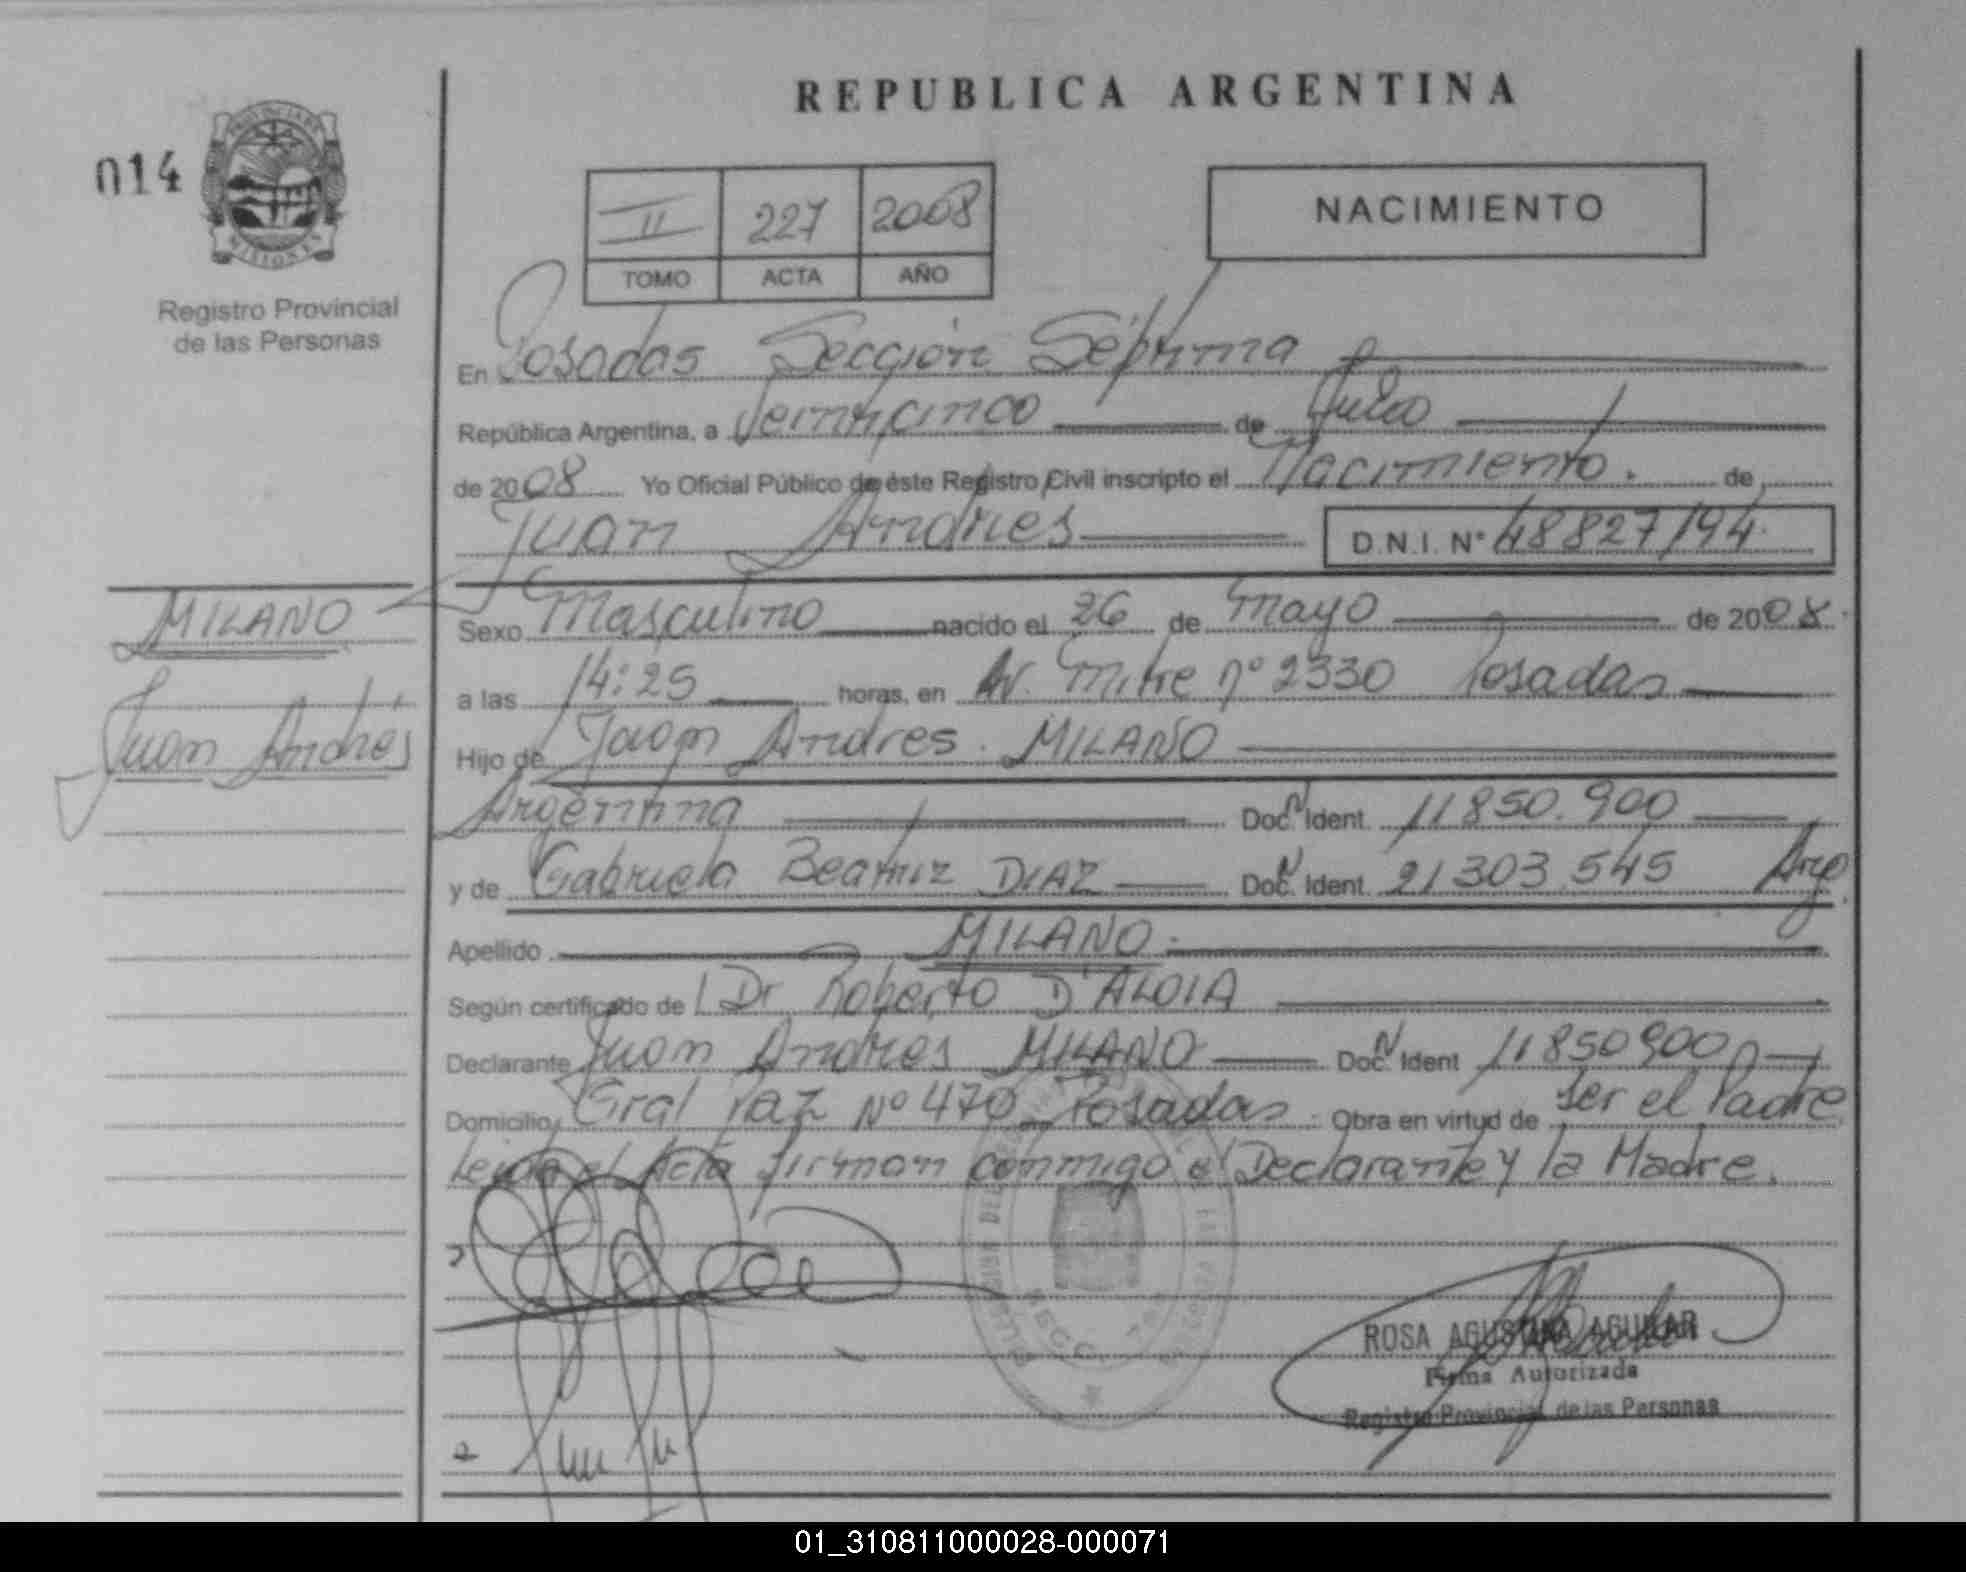 REPUBLICA ARGENTINA
014
PROVINCIA DE
MISIONES
Registro Provincial
de las Personas
II 227 2008
TOMO ACTA AÑO
NACIMIENTO
En Posadas Sección Séptima
República Argentina, a Veinticinco de Julio
de 2008 Yo Oficial Público de éste Registro Civil inscripto el Nacimiento. de
Juan Andres D.N.I. N° 48827194.
MILANO
Juan Andrés
Sexo Masculino nacido el 26 de Mayo de 2008.
a las 14:25 horas, en Av. Mitre nº 2330 Posadas
Hijo de Juan Andres. MILANO
Argentina Doc. N Ident. 11850.900
y de Gabriela Beatriz DIAZ Doc. N Ident. 21303.545 Arg.
Apellido MILANO.
Según certificado de Dr Roberto D'ALOIA
Declarante Juan Andres MILANO Doc. N Ident 11850900
Domicilio Gral Paz Nº 470 Posadas. Obra en virtud de ser el Padre
Leida el Acta firman conmigo el Declarante y la Madre.
ROSA AGUSTINA AGUILAR
Firma Autorizada
Registro Provincial de las Personas
01_310811000028-000071